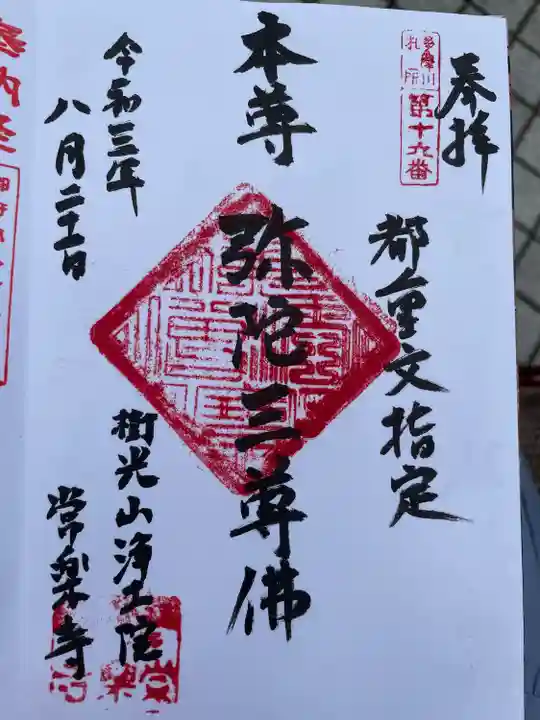 奉拝
多摩川
札所
第十六番
都重文指定
本尊 弥陀三尊佛
令和三年
八月二十一日
樹光山浄土院
常楽寺